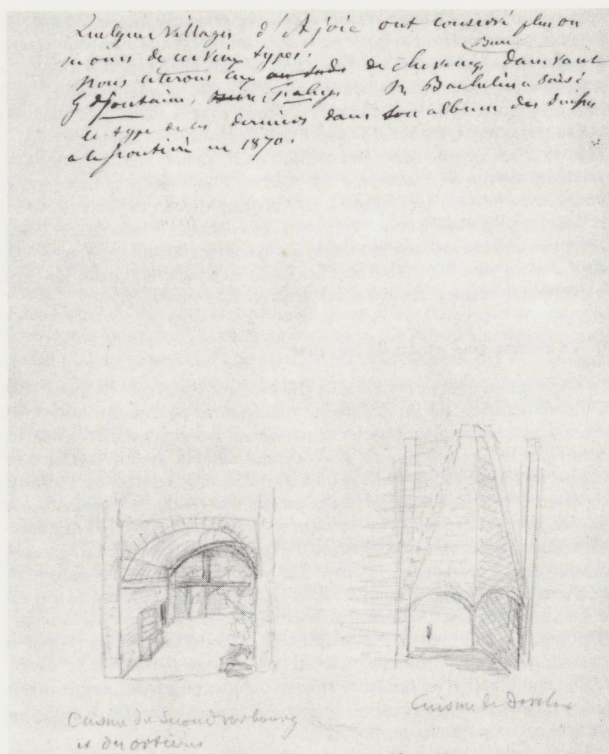 Quelques villages d'Ajoie ont conservé plus ou
moins de ces vieux types.
Bure
Nous citerons ceux de Chevenez, damvant
Gdfontaine, Bure, Fahy. Mr Bachelin a dessiné
le type de ces derniers dans son album des Suisses
a la frontière en 1870.
Cuisine du Second
et des
Cuisine de